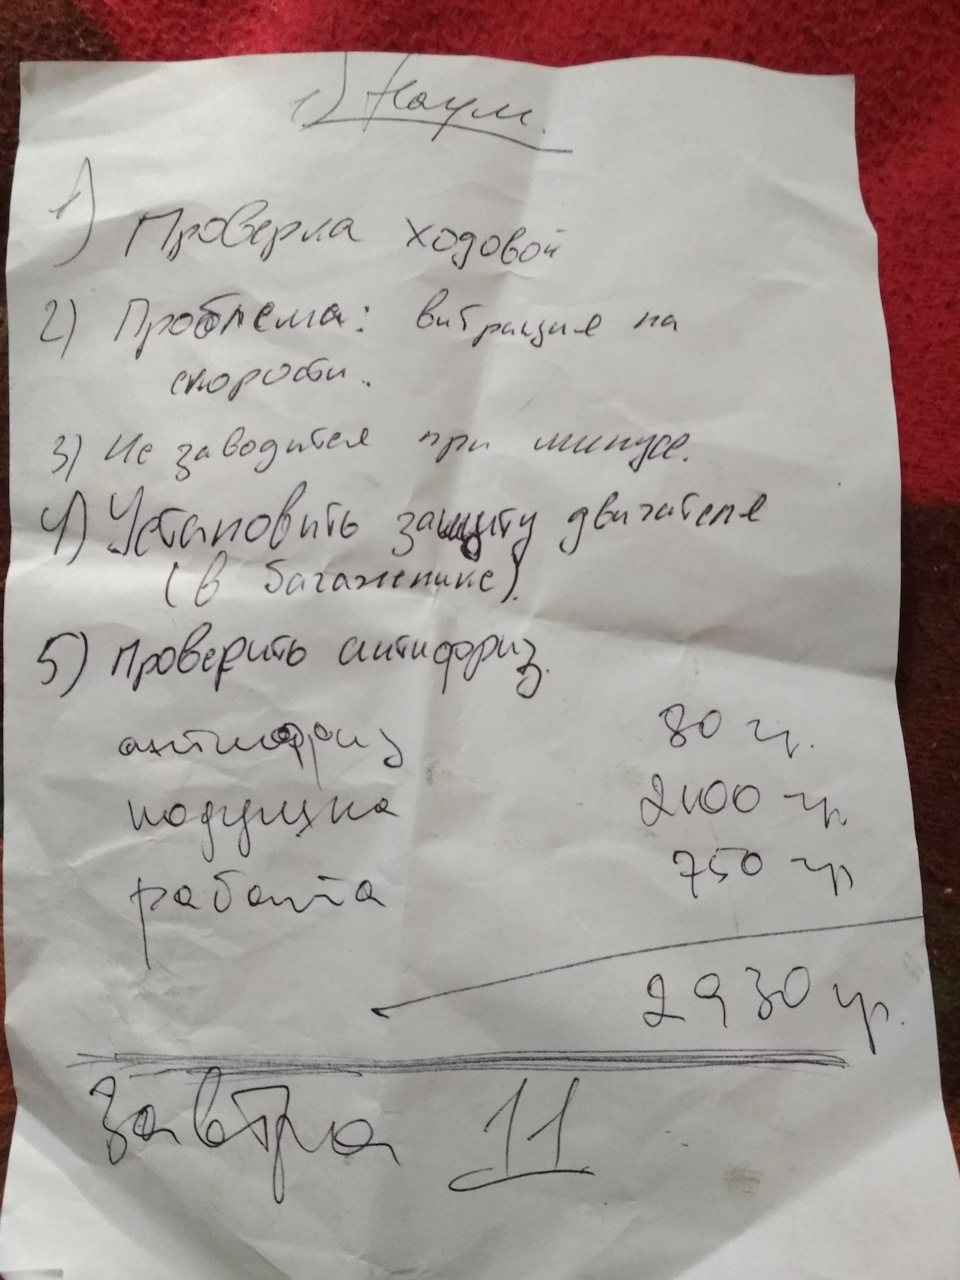 1) Наум.
1) Проверка ходовой
2) Проблема: вибрация на
скорости.
3) Не заводится при минусе.
4) Установить защиту двигателя
(в багажнике).
5) Проверить антифриз.
антифриз 80 гр.
подушка 2100 гр
работа 750 гр
2930 гр.
Завтра 11